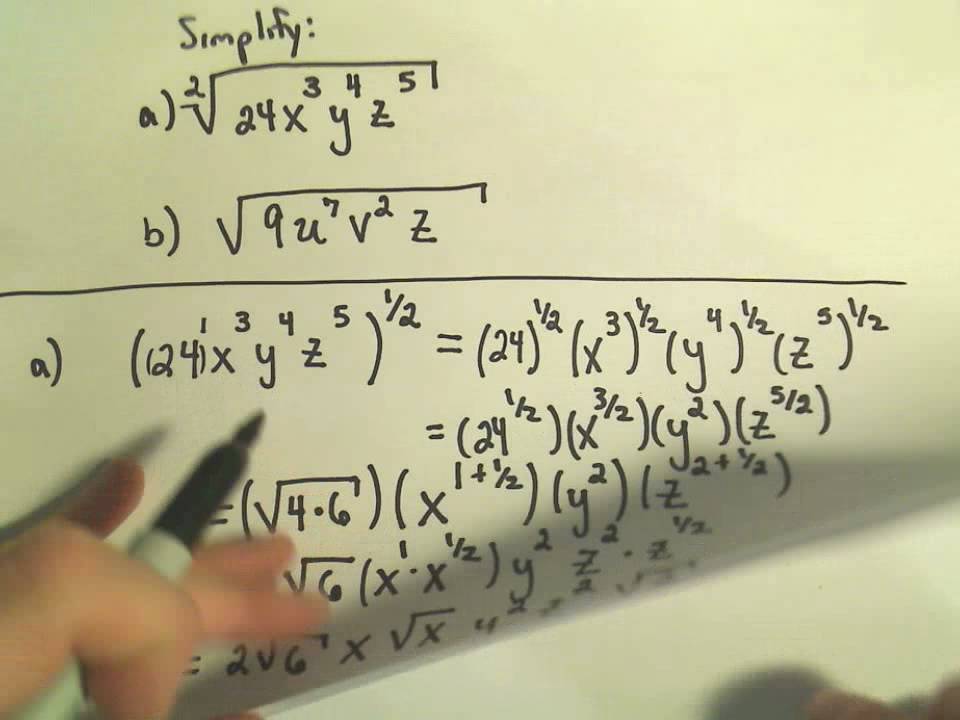 Simplify:
a) ²√(24x³y⁴z⁵)
b) √(9u⁷v²z)
a) ((24)¹x³y⁴z⁵)^(1/2) = (24)^(1/2) (x³)^(1/2) (y⁴)^(1/2) (z⁵)^(1/2)
= (24^(1/2))(x^(3/2))(y²)(z^(5/2))
= (√(4·6))(x^(1+1/2))(y²)(z^(2+1/2))
√6 (x¹·x^(1/2)) y² z²·z^(1/2)
= 2√6 x √x y² z²